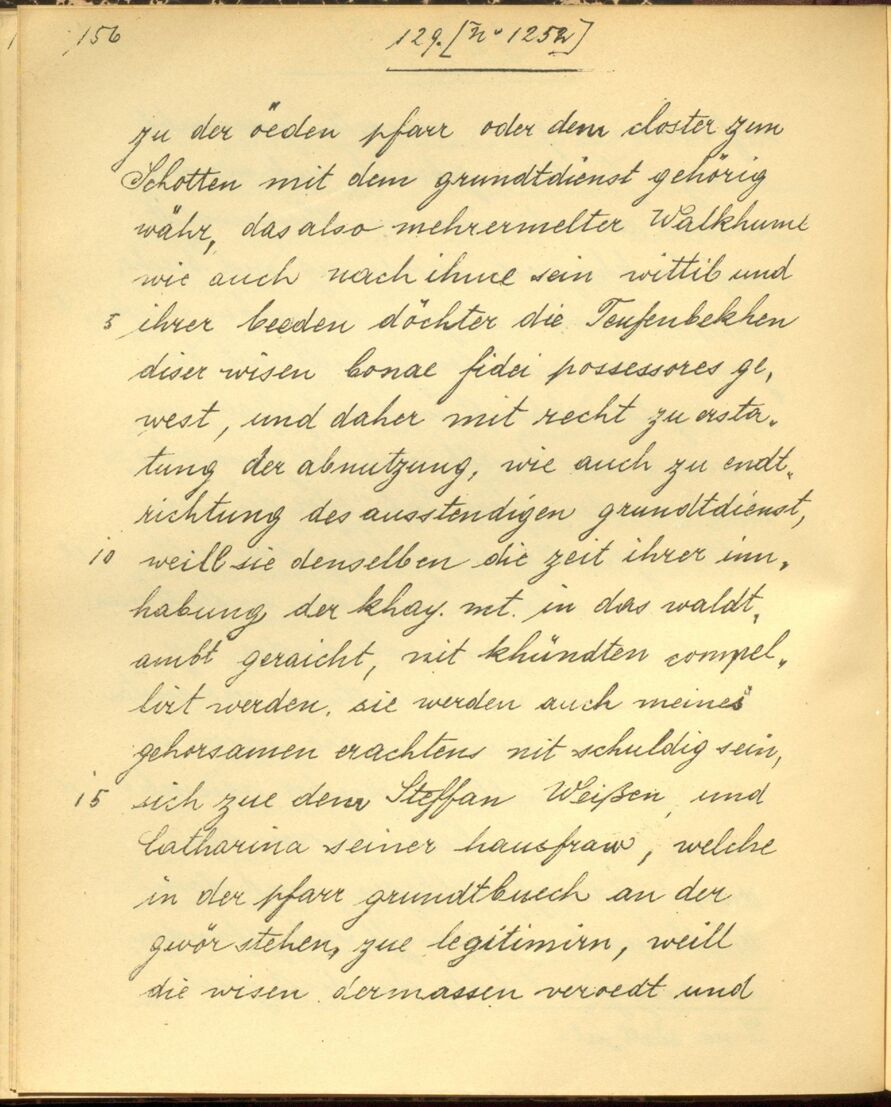 156
129. [No 1252]
zu der öeden pfarr oder dem closter zun
Schotten mit dem grundtdienst gehörig
währ, das also mehrermelter Walkhumb
wie auch nach ihme sein wittib und
5 ihrer beeden döchter die Teufenbekhen
diser wisen bonae fidei possessores ge,
west, und daher mit recht zu ersta,
tung der abnutzung, wie auch zu endt,
richtung des ausstendigen grundtdienst,
10 weill sie denselben die zeit ihrer inn,
habung der khay. mt. in das waldt,
ambt geraicht, nit khündten compel,
lirt werden. sie werden auch meines
gehorsamen erachtens nit schuldig sein,
15 sich zue dem Steffan Weißen und
Catharina seiner hausfraw, welche
in der pfarr grundtbuech an der
gwör stehen, zue legitimirn, weill
die wisen dermassen veroedt und